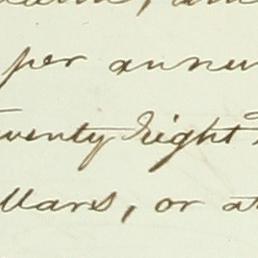 per annu
wenty Eight
llars, or at